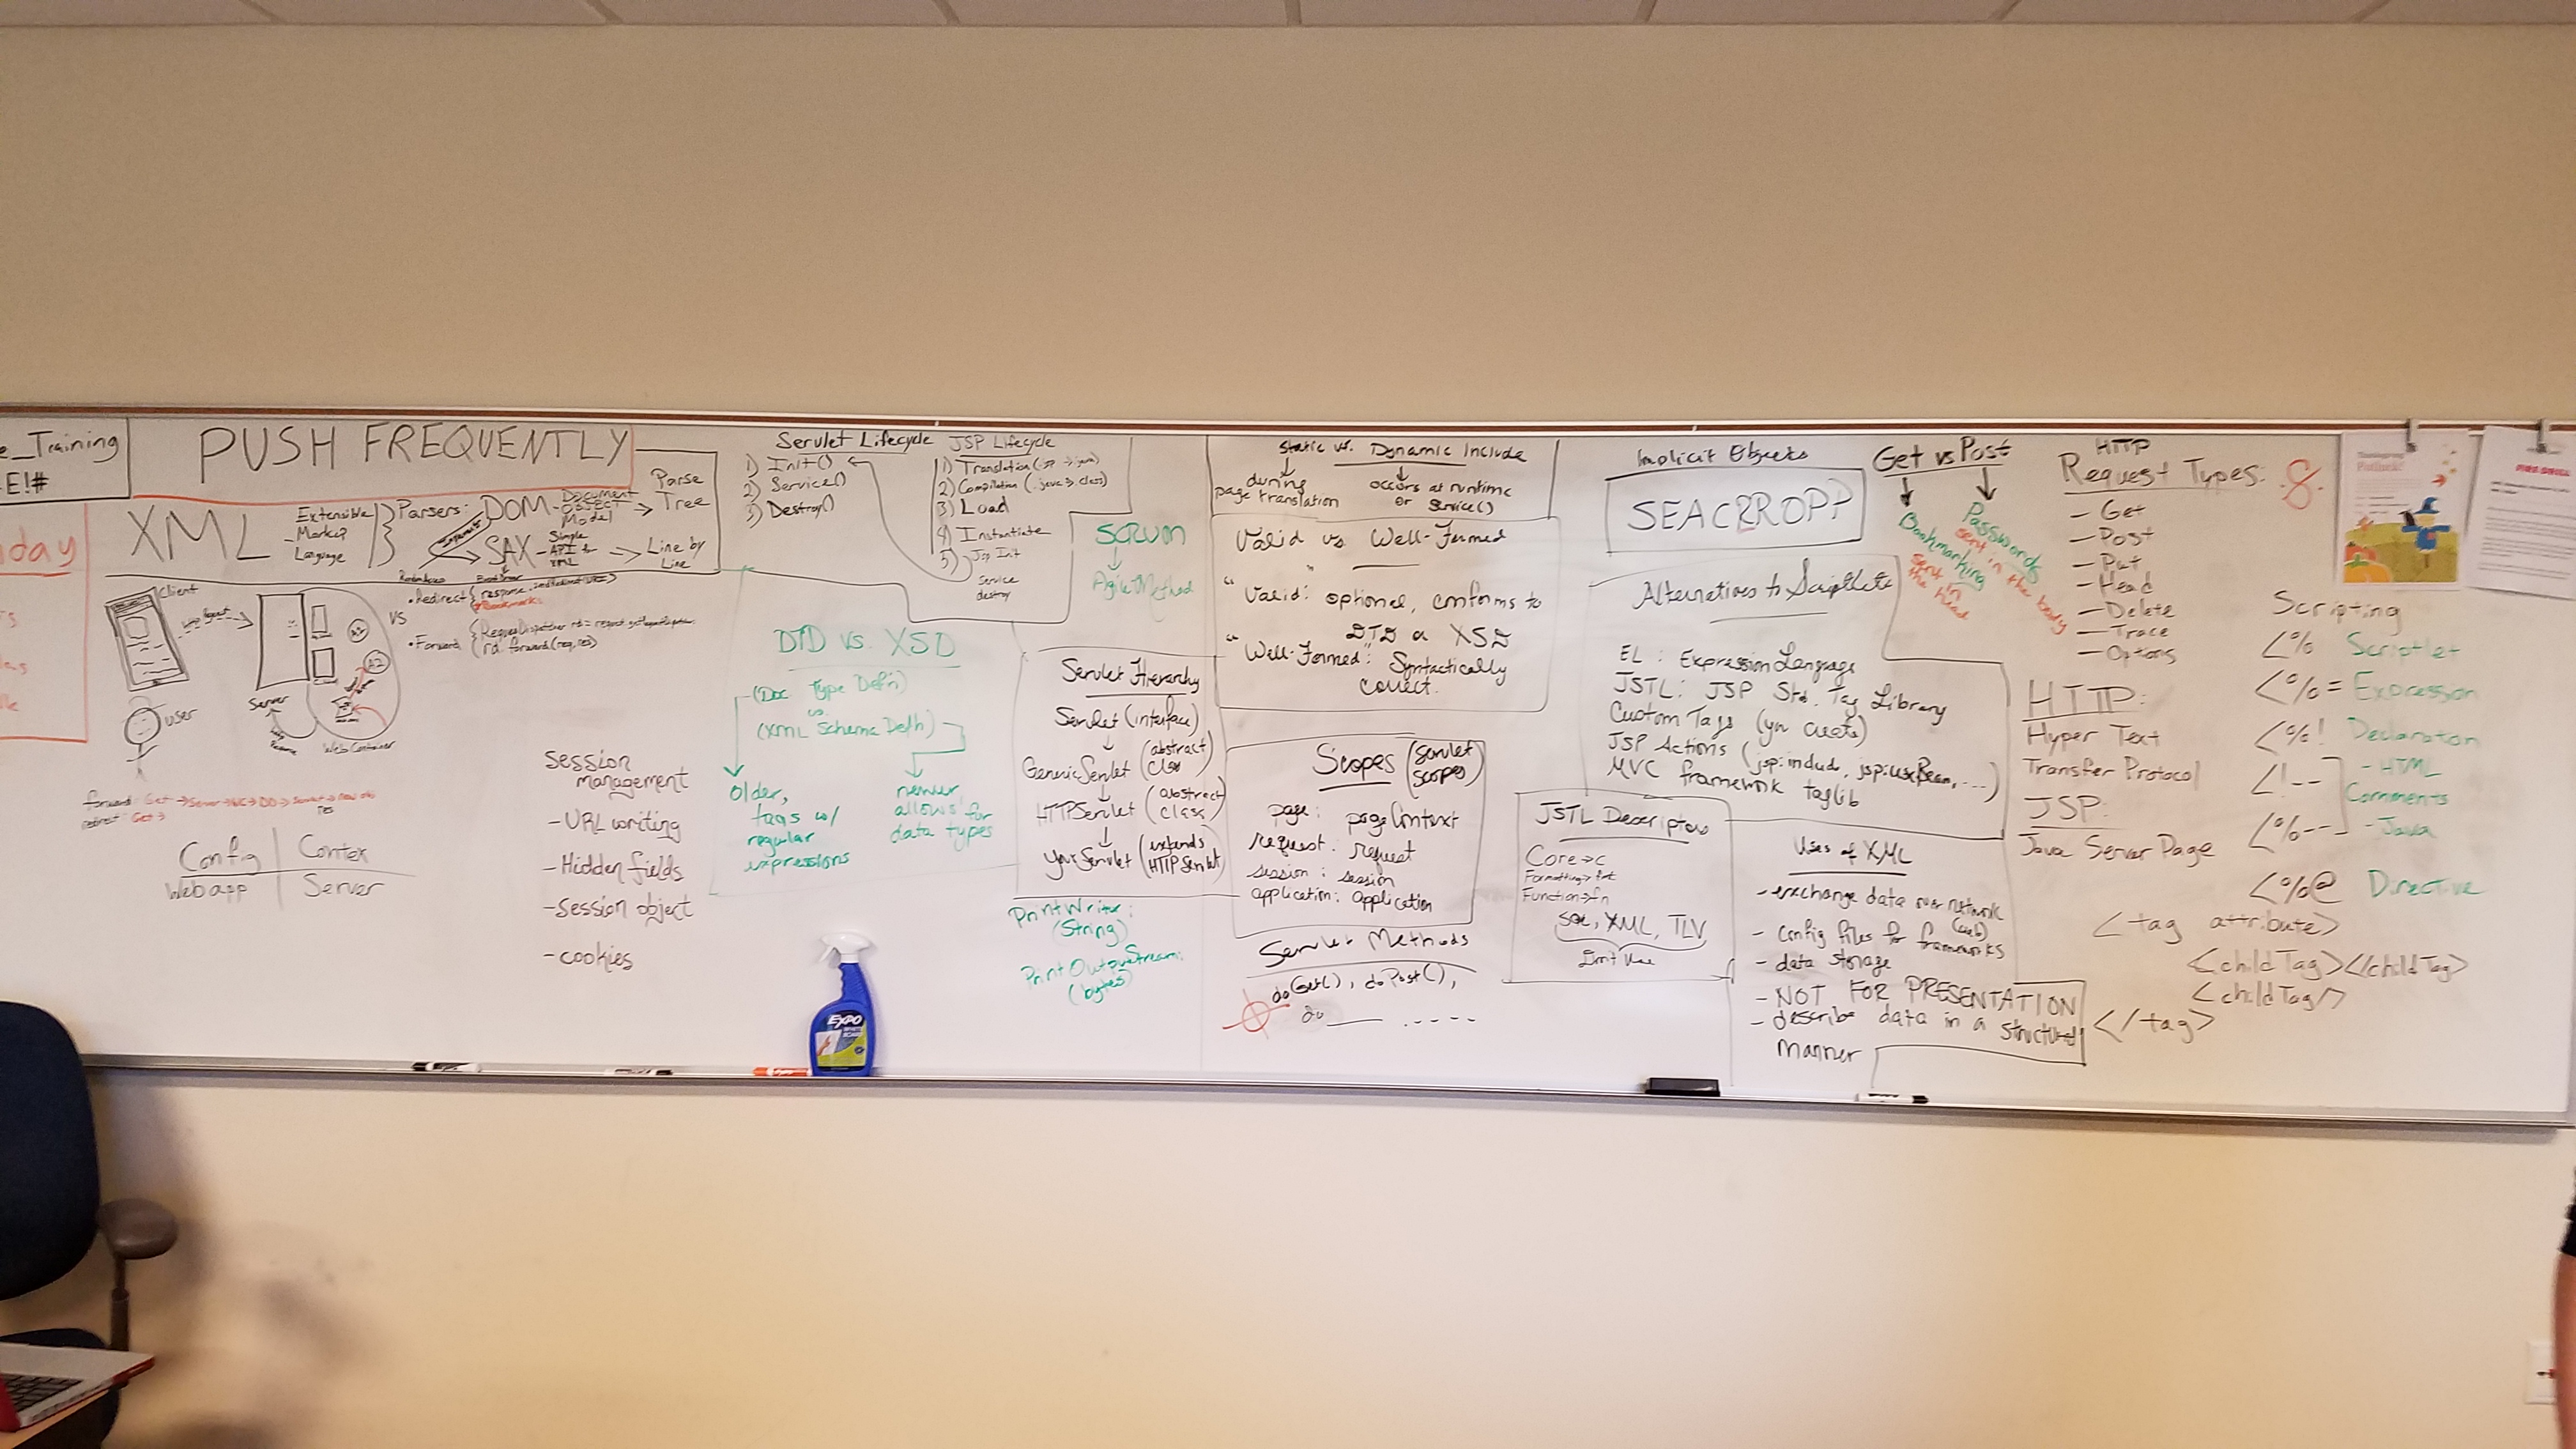 e_Training
E!#
PUSH FREQUENTLY
day
XML
Extensible
Markup
Language
Parsers:
DOM - Document
Object
Model
Parse
Tree
SAX - Simple
API for
XML
Line by
Line
Client
Server
Web Container
user
VS
• Redirect
• Forward
rd.forward(req, res)
forward: Get → Server → WC → DD → Servlet → new obj
redirect: Get →
Config | Contex
Web app | Server
Session
management
- URL writing
- Hidden fields
- Session object
- cookies
Servlet Lifecycle
1) Init()
2) Service()
3) Destroy()
JSP Lifecycle
1) Translation (.jsp → .java)
2) Compilation (.java → .class)
3) Load
4) Instantiate
5) Jsp Init
Service
destroy
SCRUM
Agile Method
DTD vs. XSD
(Doc Type Defn)
vs.
(XML Schema Defn)
Older,
tags w/
regular
expressions
newer,
allows for
data types
Servlet Hierarchy
Servlet (interface)
Generic Servlet (abstract
class)
HTTPServlet (abstract
class)
YourServlet (extends
HTTPServlet)
PrintWriter:
(String)
PrintOutputstream:
(bytes)
Static vs. Dynamic Include
during
page translation
occurs at runtime
or service()
Valid vs Well-Formed
"Valid": optional, conforms to
DTD or XSD
"Well-Formed": Syntactically
correct.
Scopes (servlet
scopes)
page: pageContext
request: request
session: session
application: application
Servlet Methods
doGet(), doPost(),
do
Implicit Objects
SEACRROP?
Alternatives to Scriptlets
EL: Expression Language
JSTL: JSP Std. Tag Library
Custom Tags (you create)
JSP Actions (jsp:includ, jsp:useBean, ...)
MVC framework taglib
JSTL Descriptors
Core → c
Formatting → fmt
Function → fn
SQL, XML, TLV
Don't Use
Uses of XML
- exchange data over network
(web)
- config files for frameworks
- data storage
- NOT FOR PRESENTATION
- describe data in a structured
manner
Get vs Post
Bookmarking
sent in
the head
Passwords
sent in the body
HTTP
Request Types: 8
- Get
- Post
- Put
- Head
- Delete
- Trace
- Options
HTTP:
Hyper Text
Transfer Protocol
JSP:
Java Server Page
Scripting
<% Scriptlet
<%= Expression
<%! Declaration
<!-- - HTML
Comments
<%-- - Java
<%@ Directive
<tag attribute>
<childTag></childTag>
<childTag/>
</tag>
Thanksgiving
Potluck!
FIRE DRILL
EXPO